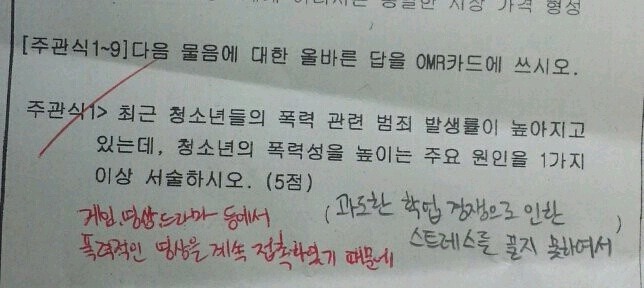 시장 가격 형성
[주관식1~9]다음 물음에 대한 올바른 답을 OMR카드에 쓰시오.
주관식1> 최근 청소년들의 폭력 관련 범죄 발생률이 높아지고
있는데, 청소년의 폭력성을 높이는 주요 원인을 1가지
이상 서술하시오. (5점)
게임, 영상드라마 등에서
폭력적인 영상을 계속 접촉하였기 때문에
(과도한 학업 경쟁으로 인한
스트레스를 풀지 못하여서)